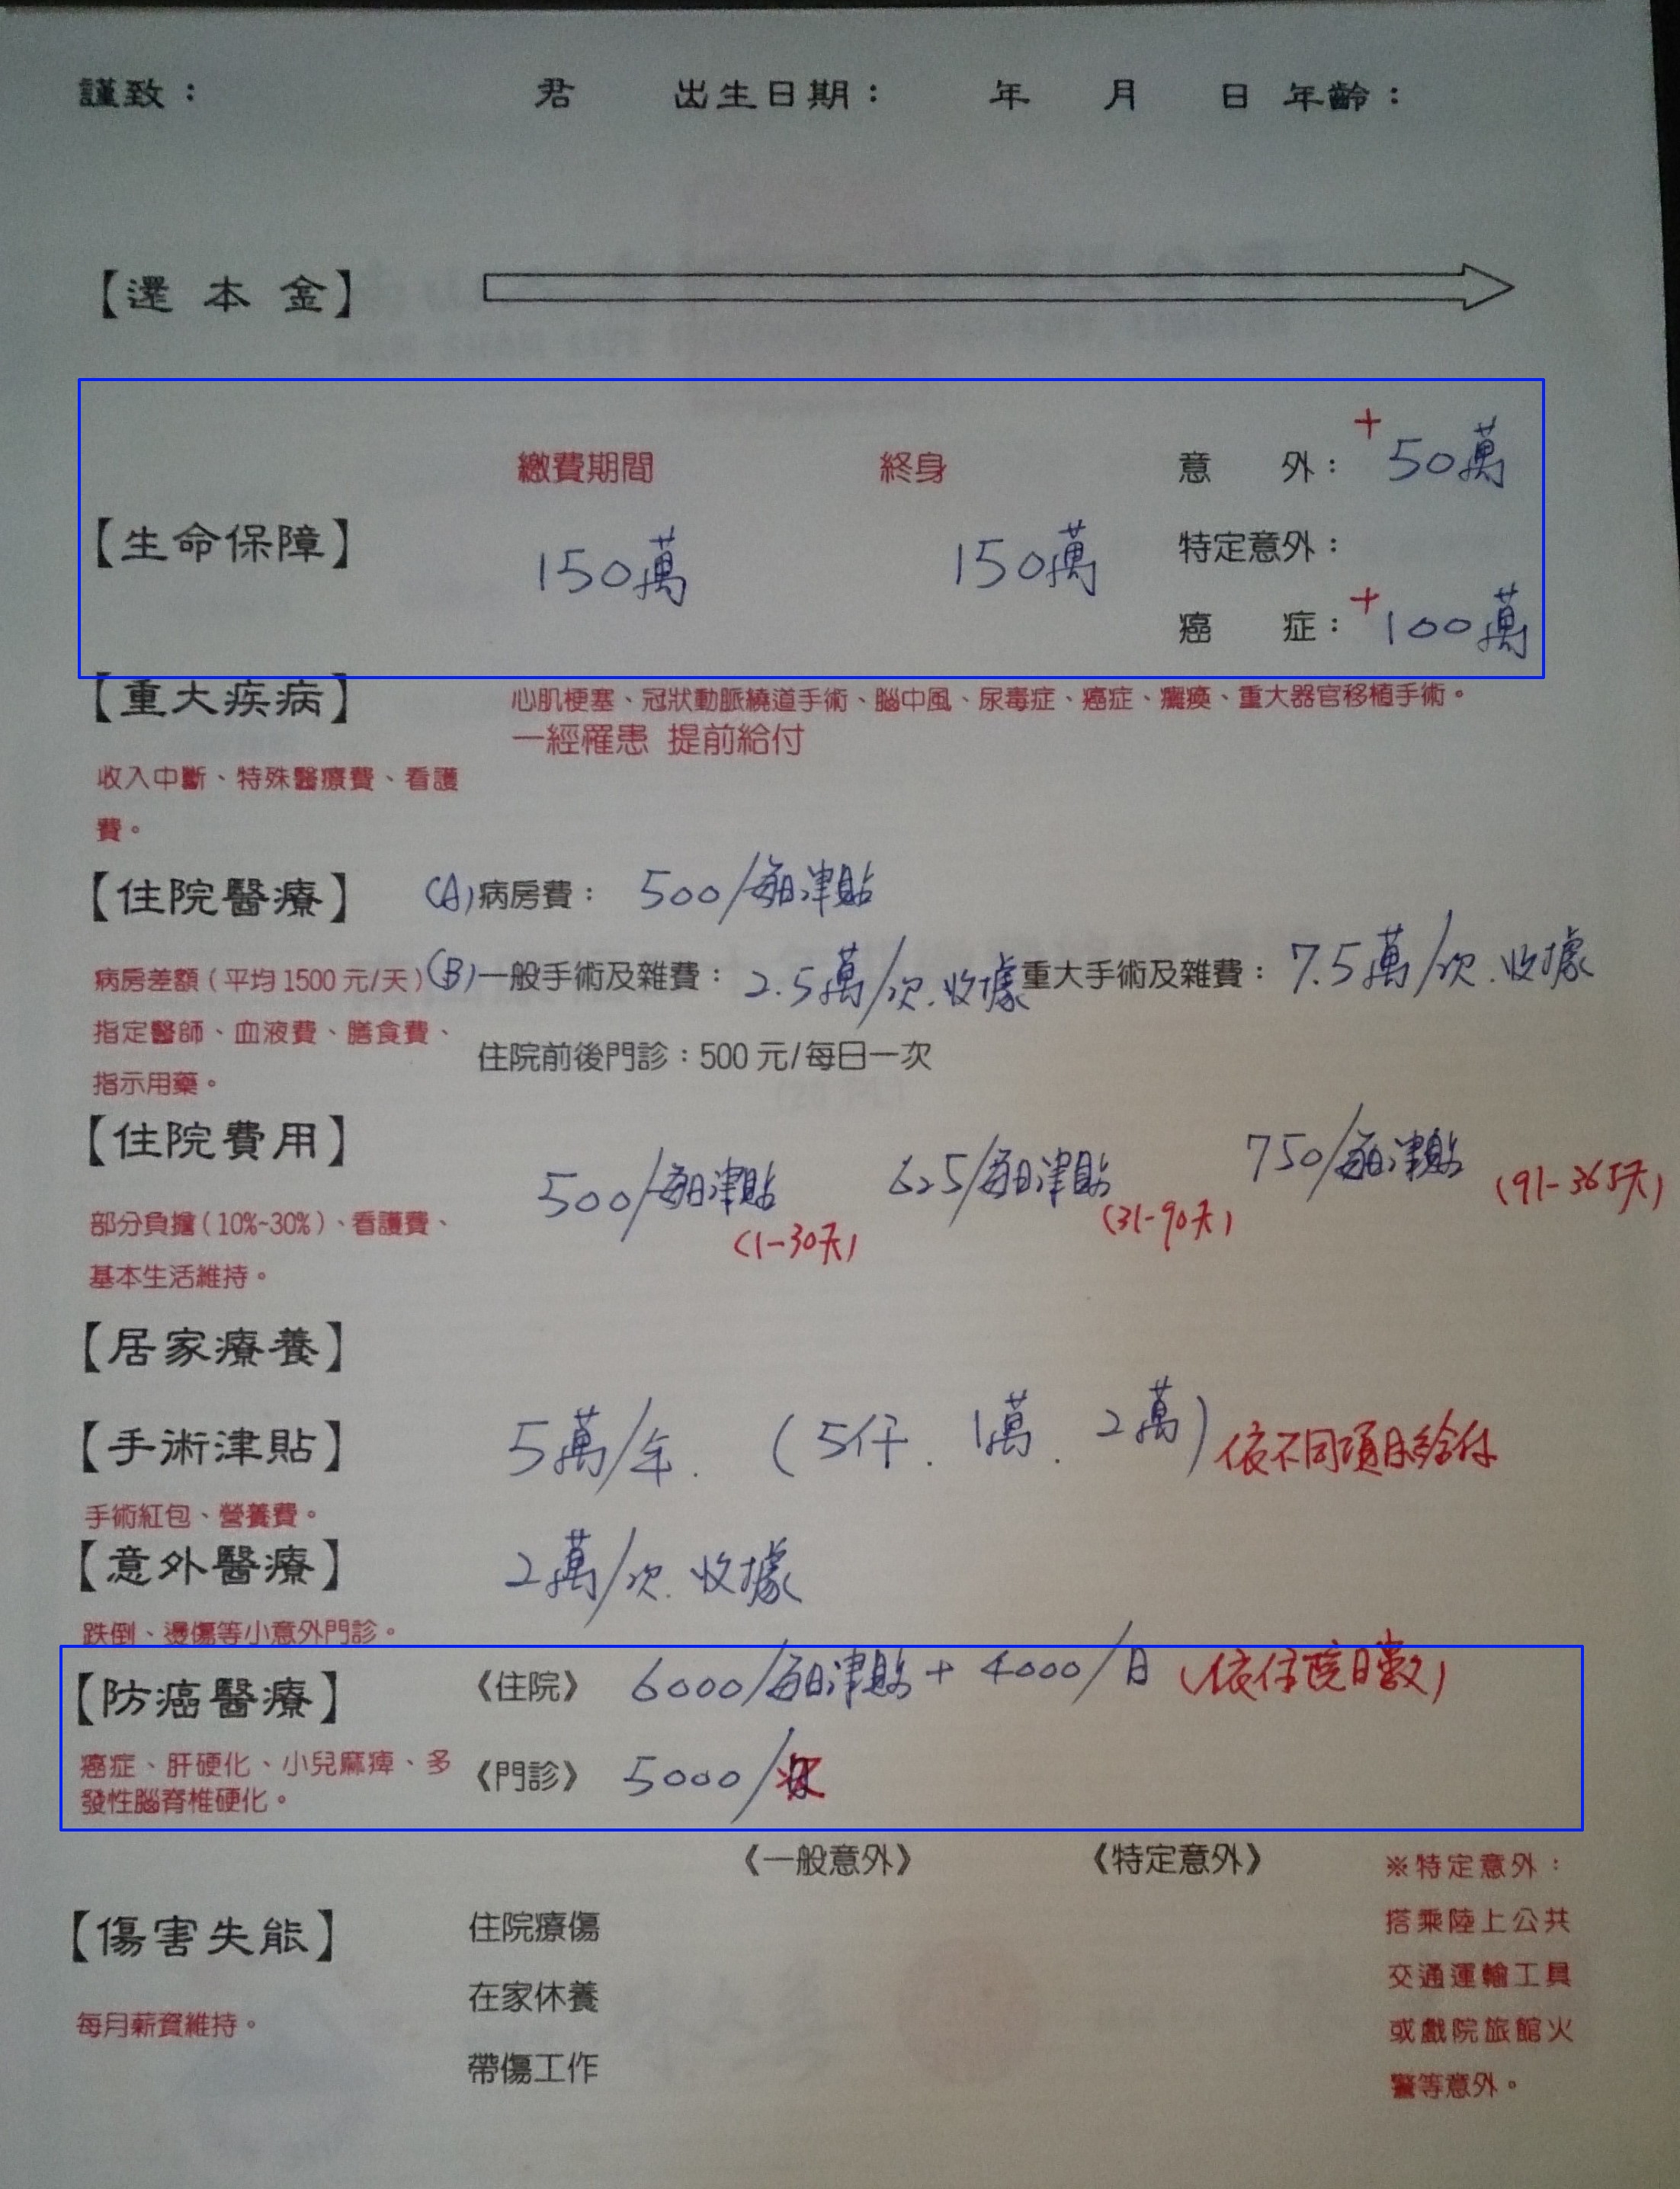 謹致： 君 出生日期： 年 月 日 年齡：
【還本金】
繳費期間 終身 意外：+50萬
【生命保障】 150萬 150萬 特定意外：
癌症：+100萬
【重大疾病】 心肌梗塞、冠狀動脈繞道手術、腦中風、尿毒症、癌症、癱瘓、重大器官移植手術。
一經罹患 提前給付
收入中斷、特殊醫療費、看護
費。
【住院醫療】 (A)病房費： 500/每日津貼
病房差額(平均1500元/天) (B)一般手術及雜費： 2.5萬/次.收據 重大手術及雜費： 7.5萬/次.收據
指定醫師、血液費、膳食費、
住院前後門診：500元/每日一次
指示用藥。
【住院費用】
500/每日津貼 (1-30天) 625/每日津貼 (31-90天) 750/每日津貼 (91-365天)
部分負擔(10%~30%)、看護費、
基本生活維持。
【居家療養】
【手術津貼】 5萬/年. (5仟. 1萬. 2萬) 依不同項目給付
手術紅包、營養費。
【意外醫療】 2萬/次.收據
跌倒、燙傷等小意外門診。
【防癌醫療】 《住院》 6000/每日津貼 + 4000/日 (依住院日數)
癌症、肝硬化、小兒麻痺、多
發性腦脊椎硬化。
《門診》 5000/次
《一般意外》 《特定意外》 ※特定意外：
【傷害失能】 住院療傷 搭乘陸上公共
在家休養 交通運輸工具
每月薪資維持。 或戲院旅館火
帶傷工作 警等意外。